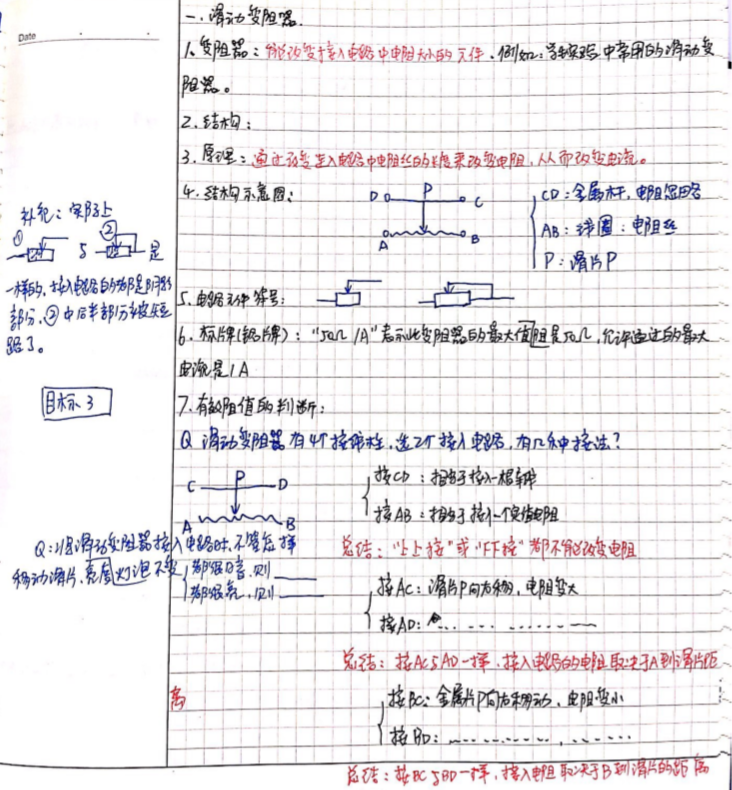 Date
一.滑动变阻器.
1.变阻器：能改变接入电路中电阻大小的元件.例如：学生实验中常用的滑动变
阻器。
2.结构：
3.原理：通过改变连入电路中电阻丝的长度来改变电阻,从而改变电流。
4.结构示意图：
D P C
A B
CD：金属杆,电阻忽略
AB：线圈：电阻丝
P：滑片P
补充：实际上
① 与 ② 是
一样的,接入电路的都是阴影
部分,②中后半部分被短
路了。
5.电路元件符号：
6.标牌(铭牌)："50Ω 1A"表示此变阻器的最大值阻是50Ω,允许通过的最大
电流是1A
目标3
7.有效阻值的判断：
Q 滑动变阻器有4个接线柱,选2个接入电路,有几种接法?
C P D
A B
接CD：相当于接入一根导线
接AB：相当于接入一个定值电阻
总结："上上接"或"下下接"都不能改变电阻
Q：将滑动变阻器接入电路时,不管怎样
移动滑片,亮度灯泡不变
都很暗,则
都很亮,则
接AC：滑片P向右移,电阻变大
接AD：
总结：接AC与AD一样,接入电路的电阻取决于A到滑片距
离
接BC：金属片P向右移动,电阻变小
接BD：
总结：接BC与BD一样,接入电阻取决于B到滑片的距离